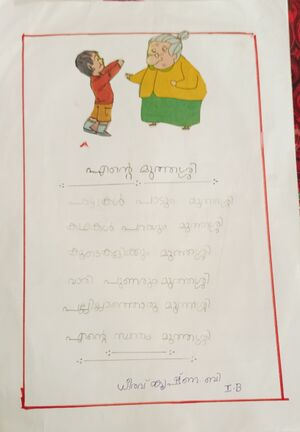 എന്റെ മുത്തശ്ശി
പാട്ടുകൾ പാടും മുത്തശ്ശി
കഥകൾ പറയും മുത്തശ്ശി
മുത്തശ്ശി
വാരി പുണരും മുത്തശ്ശി
മുത്തശ്ശി
എന്റെ സ്വന്തം മുത്തശ്ശി
ധീരവ് കൃഷ്ണ ബി
I.B